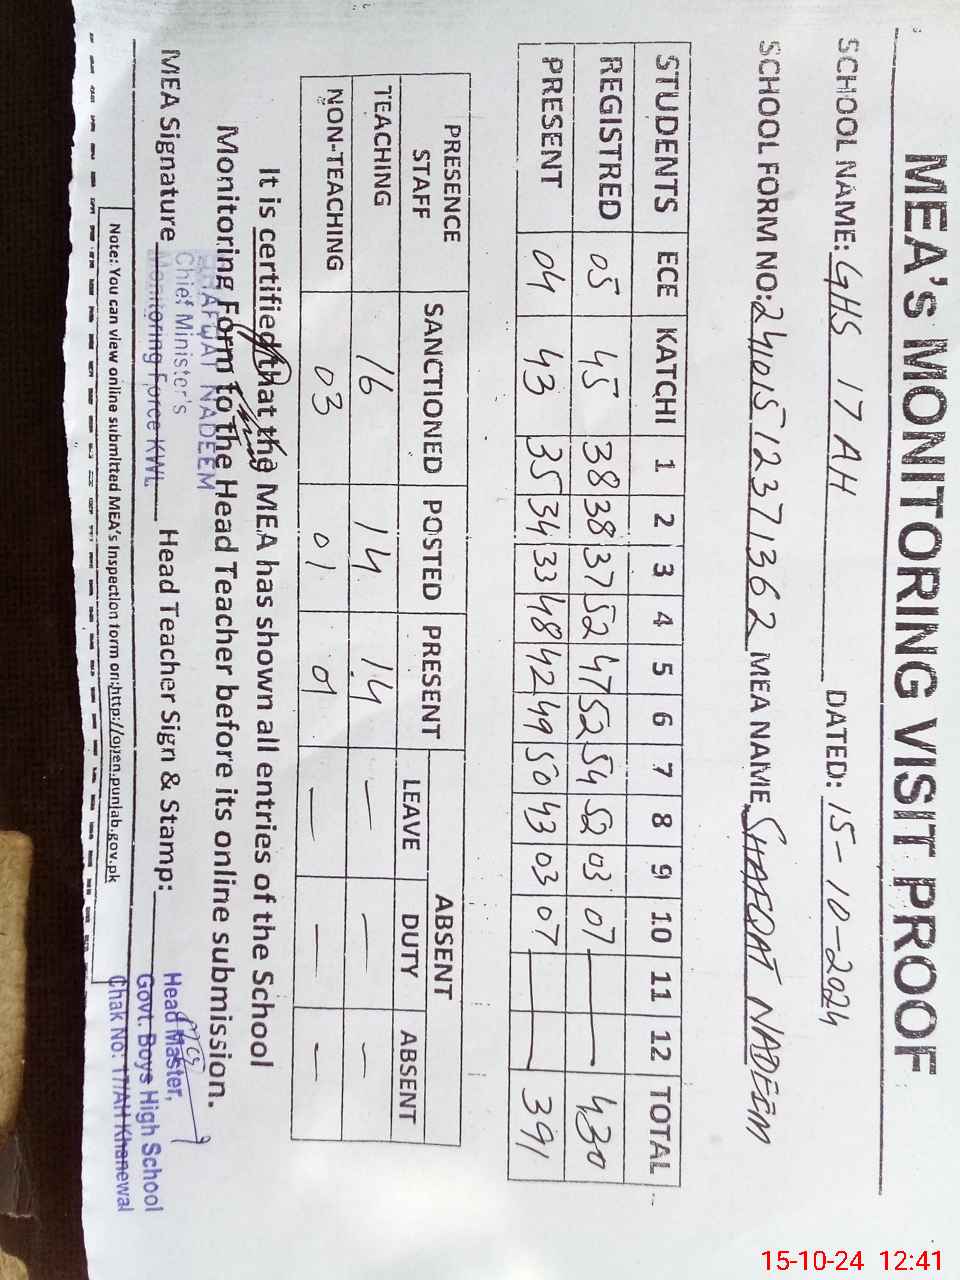 MEA's MONITORING VISIT PROOF
SCHOOL NAME: GHS 17 AH DATED: 15-10-2024
SCHOOL FORM NO: 24101512371362 MEA NAME SHAFQAT NADEEM
STUDENTS ECE KATCHI 1 2 3 4 5 6 7 8 9 10 11 12 TOTAL
REGISTRED 05 45 38 38 37 52 47 52 54 52 03 07 — 430
PRESENT 04 43 35 34 33 48 42 49 50 43 03 07 — 391
PRESENCE STAFF SANCTIONED POSTED PRESENT ABSENT
LEAVE DUTY ABSENT
TEACHING 16 14 14 — — —
NON-TEACHING 03 01 01 — — —
It is certified that the MEA has shown all entries of the School
Monitoring Form to the Head Teacher before its online submission.
SHAFQAT NADEEM
Chief Minister's
Monitoring Force KWL
MEA Signature Head Teacher Sign & Stamp:
Head Master,
Govt. Boys High School
Chak No. 17/AH Khanewal
Note: You can view online submitted MEA's Inspection form on:http://open.punjab.gov.pk
15-10-24 12:41